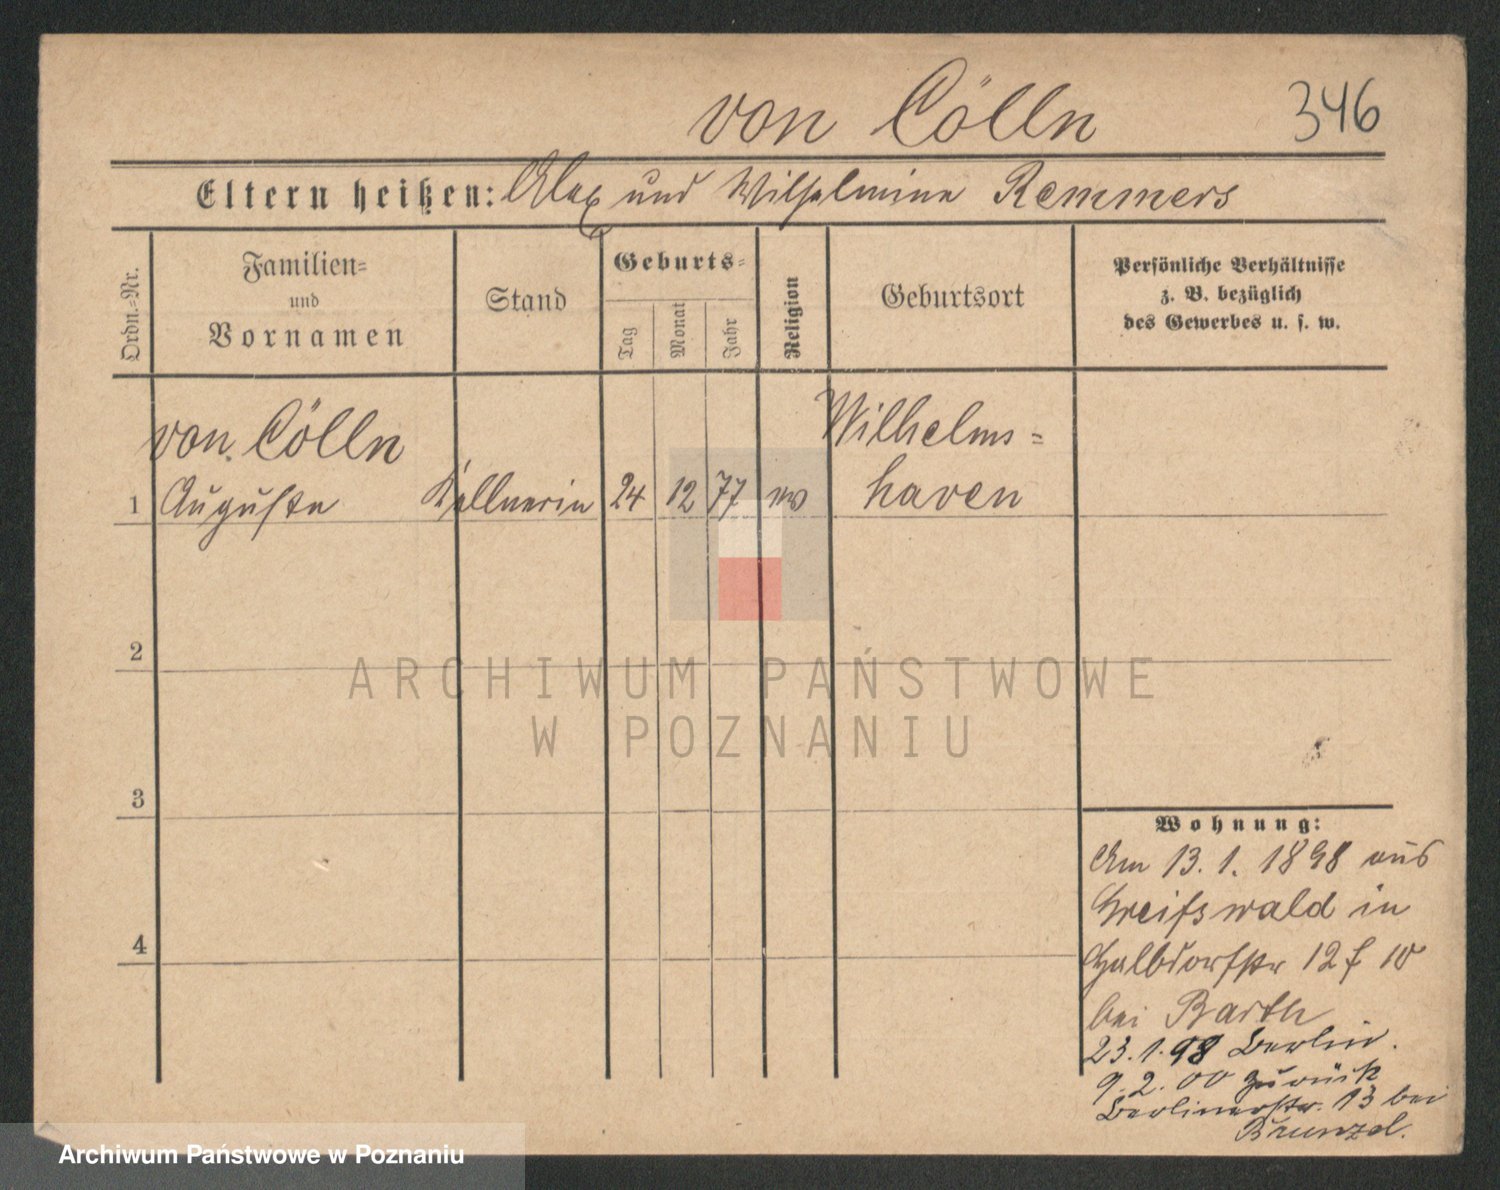 von Cölln 346
Eltern heißen: Alex und Wilhelmine Remmers
Ordn.-Nr.
Familien-
und
Vornamen
Stand
Geburts-
Tag
Monat
Jahr
Religion
Geburtsort
Persönliche Verhältnisse
z. B. bezüglich
des Gewerbes u. s. w.
von Cölln
1 Auguste Kellnerin 24 12 77 ev
Wilhelms-
haven
2
3
4
Wohnung:
Am 13. 1. 1898 aus
Greifswald in
Halbdorfstr 12
bei Barth
23.1.98 Berlin.
9.2.00 zurück
Berlinerstr. 13 bei
Brunzel.
ARCHIWUM PAŃSTWOWE
W POZNANIU
Archiwum Państwowe w Poznaniu